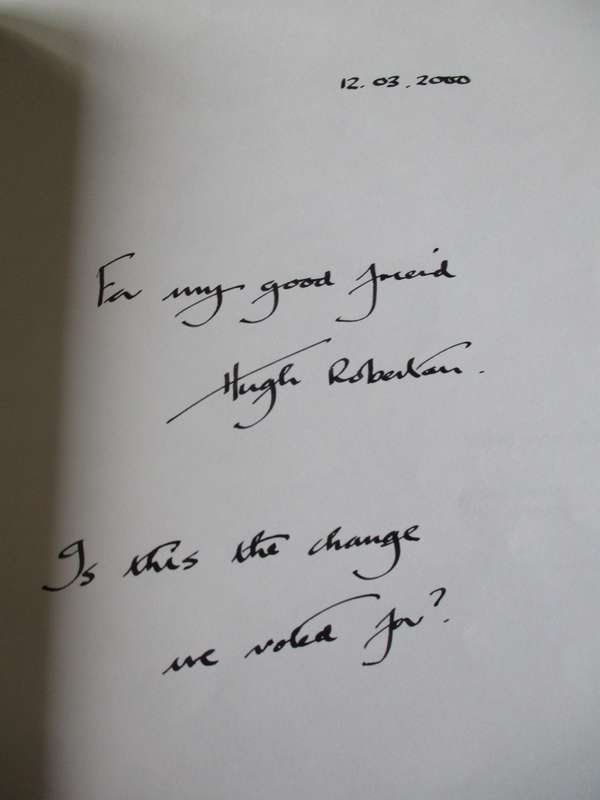 12.03.2000
For my good friend
Hugh Robertson.
Is this the change
we voted for?